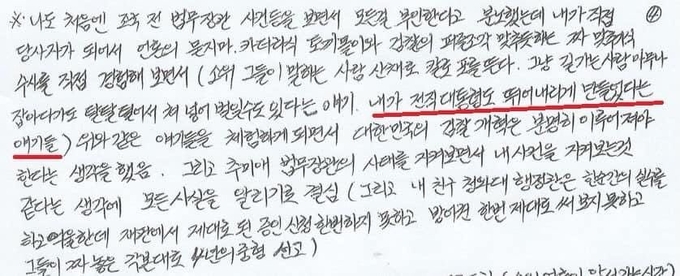 ※ 나도 처음엔 조국 전 법무장관 사건들을 보면서 모든걸 부인한다고 분노했는데 내가 직접 ④
당사자가 되어서 언론의 묻지마, 카더라식 토끼몰이와 검찰의 퍼즐조각 맞추듯하는 짜 맞추기식
수사를 직접 경험해 보면서 (소위 그들이 말하는 사람 산채로 칼로 포를 뜬다. 그냥 길가는사람 아무나
잡아다가도 탈탈 털어서 쳐 넣어 벌일수도 있다는 얘기. 내가 전직대통령도 뛰어내리게 만들었다는
얘기들) 위와 같은 얘기들을 체험하게 되면서 대한민국의 검찰 개혁은 분명히 이루어져야
한다는 생각을 했음. 그리고 추미애 법무장관의 사태를 지켜보면서 내 사건을 지켜보는것
같다는 생각에 모든사실을 알리기로 결심 (그리고 내 친구 청와대 행정관은 한순간의 실수를
하고 억울한데 재판에서 제대로 된 증인 신청 한번하지 못하고 방어권 한번 제대로 써 보지 못하고
그들이 짜 놓은 각본대로 4년의 중형 선고)